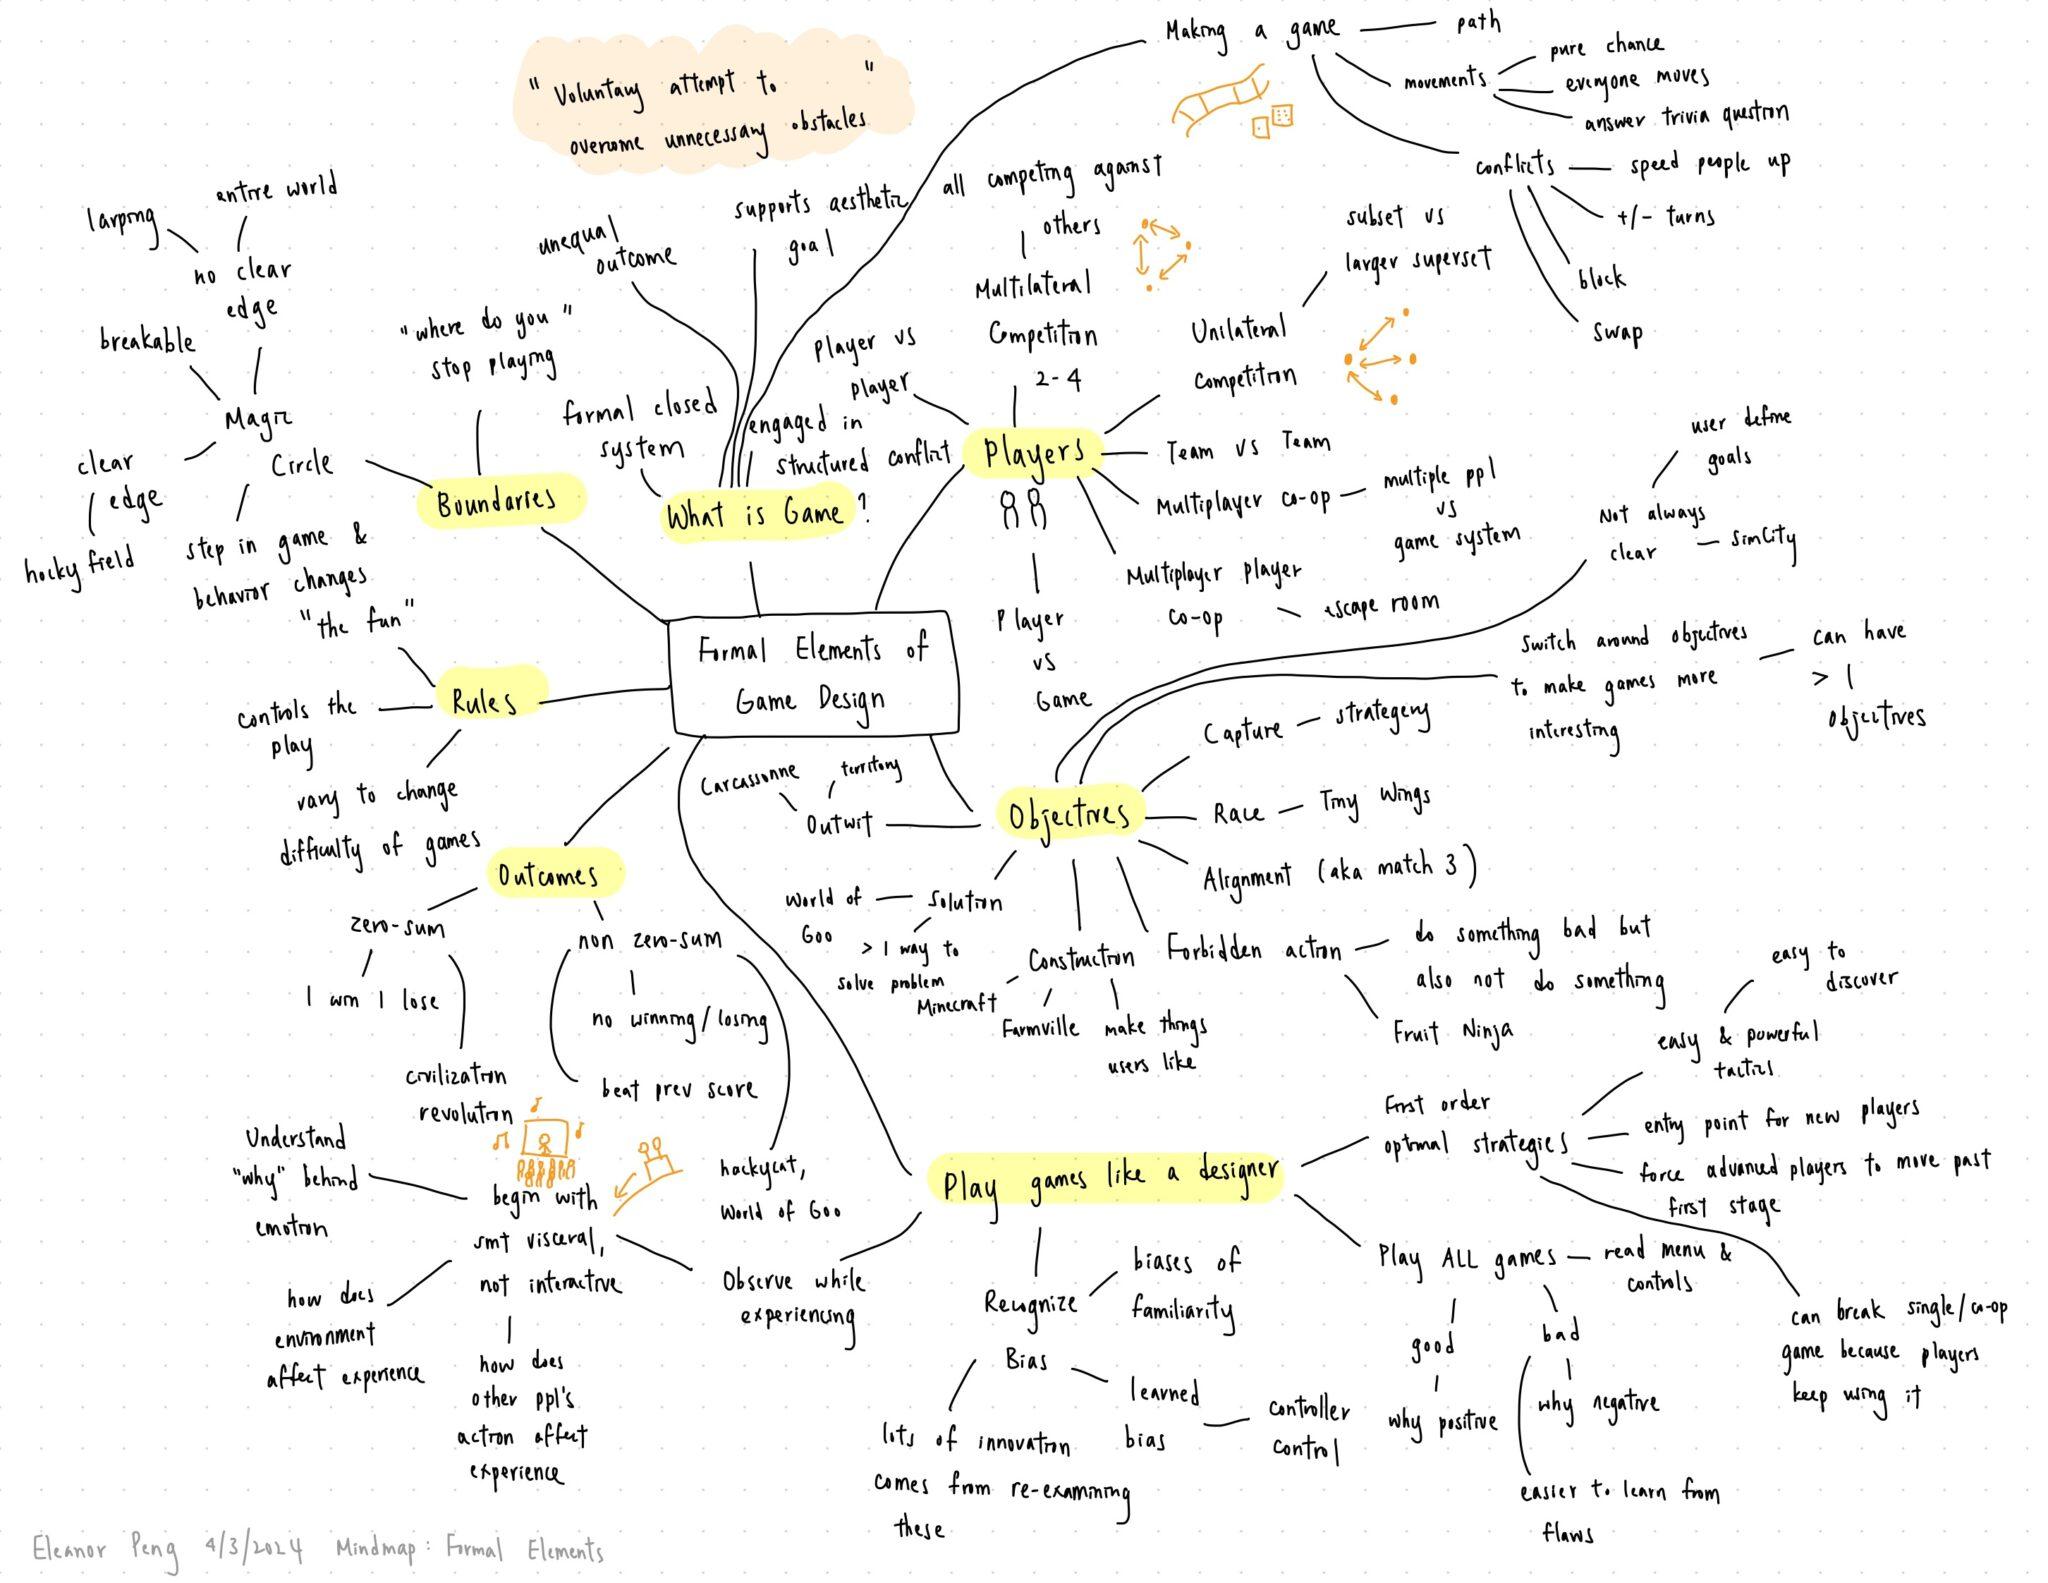 Making a game
path
movements
pure chance
everyone moves
answer trivia question
conflicts
speed people up
+/- turns
block
swap
"Voluntary attempt to "
overcome unnecessary obstacles
larping
entire world
no clear
edge
breakable
Magic
Circle
clear
edge
hocky field
step in game &
behavior changes
"where do you "
stop playing
Boundaries
unequal
outcome
supports aesthetic
goal
formal closed
system
engaged in
structured conflict
What is Game?
all competing against
others
Multilateral
Competition
2-4
Player vs
player
subset vs
larger superset
Unilateral
competition
Players
Team vs Team
Multiplayer co-op
multiple ppl
vs
game system
Multiplayer player
co-op
escape room
Player
vs
Game
user define
goals
Not always
clear
SimCity
Formal Elements of
Game Design
"the fun"
Rules
controls the
play
vary to change
difficulty of games
Switch around objectives
to make games more
interesting
can have
> 1
objectives
Capture
strategery
Carcassonne
territory
Outwit
Objectives
Race
Tiny Wings
Alignment (aka match 3)
World of
Goo
Solution
> 1 way to
solve problem
Construction
Minecraft
Farmville
make things
users like
Forbidden action
do something bad but
also not do something
Fruit Ninja
Outcomes
zero-sum
1 win 1 lose
civilization
revolution
non zero-sum
no winning/losing
beat prev score
hackycat,
World of Goo
easy to
discover
easy & powerful
tactics
First order
optimal strategies
entry point for new players
force advanced players to move past
first stage
can break single/co-op
game because players
keep using it
Play games like a designer
Understand
"why" behind
emotion
begin with
smt visceral,
not interactive
how does
environment
affect experience
how does
other ppl's
action affect
experience
Observe while
experiencing
Recognize
Bias
biases of
familiarity
learned
bias
controller
control
lots of innovation
comes from re-examining
these
Play ALL games
read menu &
controls
good
why positive
bad
why negative
easier to learn from
flaws
Eleanor Peng 4/3/2024 Mindmap: Formal Elements